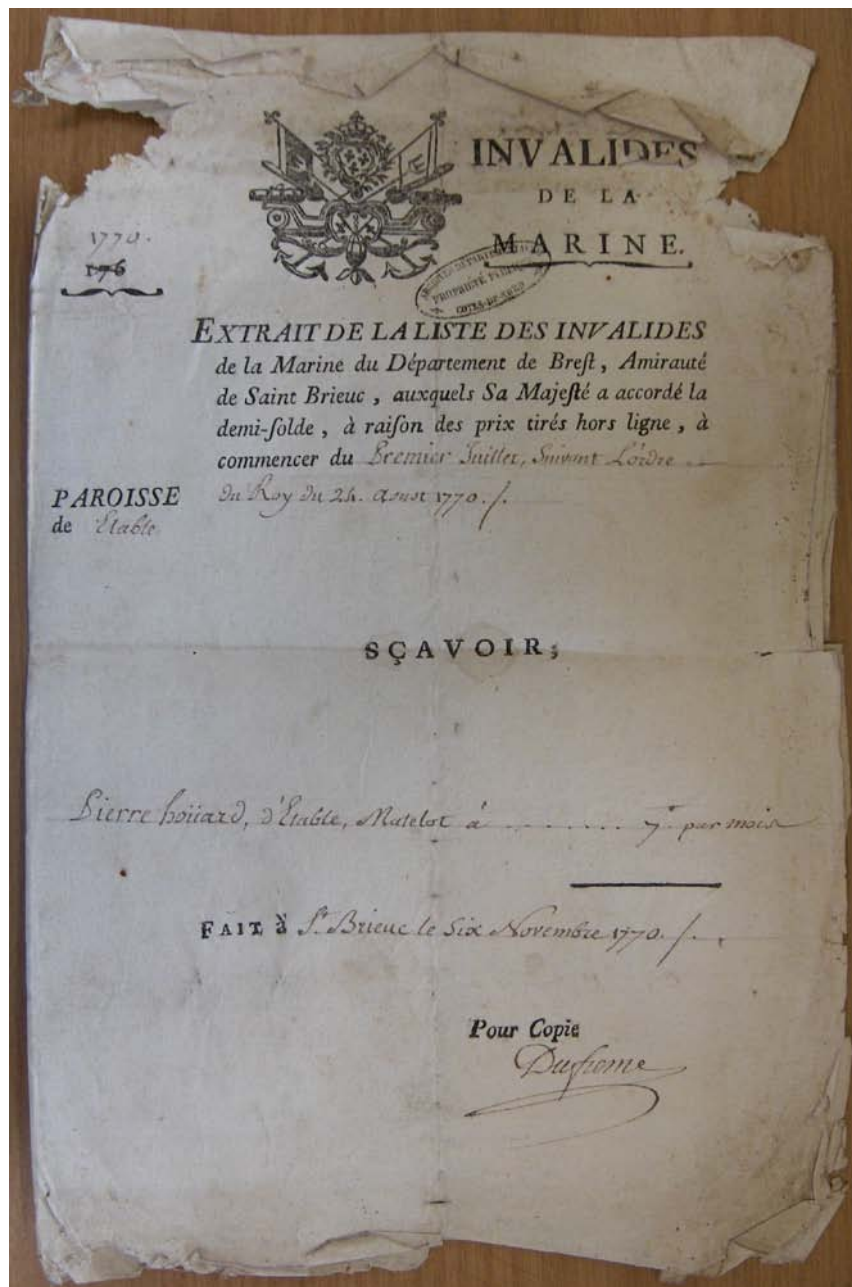 INVALIDES
DE LA
MARINE.
1770.
176
PROPRIÉTÉ PUBLIQUE
EXTRAIT DE LA LISTE DES INVALIDES
de la Marine du Département de Breſt, Amirauté
de Saint Brieuc, auxquels Sa Majeſté a accordé la
demi-ſolde, à raiſon des prix tirés hors ligne, à
commencer du Premier Juillet, Suivant L'ordre
du Roy du 24. Aoust 1770./.
PAROISSE
de Etable
SÇAVOIR;
Pierre hoüard, d'Etable, Matelot à ........ 7# par mois
FAIT à St. Brieuc le Six Novembre 1770./.
Pour Copie